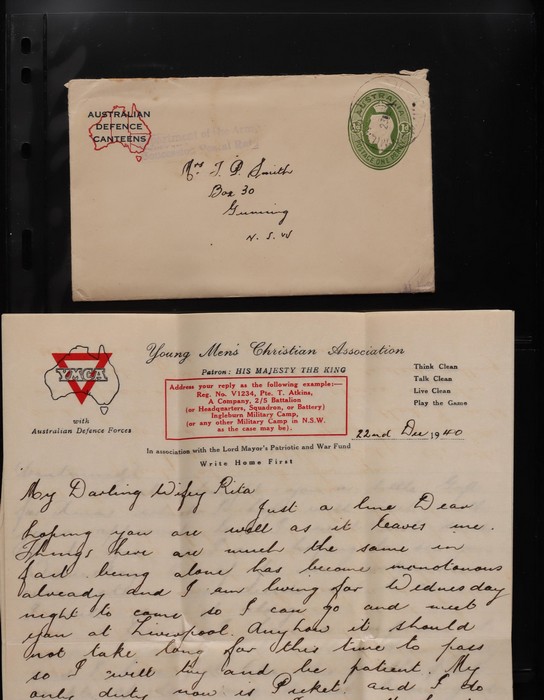 AUSTRALIAN
DEFENCE
CANTEENS
AUSTRALIA
POSTAGE ONE PENNY
Mrs T. P. Smith
Box 30
Gunning
N. S. W
Young Men's Christian Association
Patron: HIS MAJESTY THE KING
YMCA
with
Australian Defence Forces
Address your reply as the following example:—
Reg. No. V1234, Pte. T. Atkins,
A Company, 2/5 Battalion
(or Headquarters, Squadron, or Battery)
Ingleburn Military Camp,
(or any other Military Camp in N.S.W.
as the case may be).
Think Clean
Talk Clean
Live Clean
Play the Game
22nd Dec, 1940
In association with the Lord Mayor's Patriotic and War Fund
Write Home First
My Darling Wifey Rita
Just a line Dear
hoping you are well as it leaves me.
Things here are much the same in
fact being alone has become monotonous
already and I am living for Wednesday
night to come so I can go and meet
you at Liverpool. Anyhow it should
not take long for this time to pass
so I will try and be patient. My
only duty now is Picket and I do